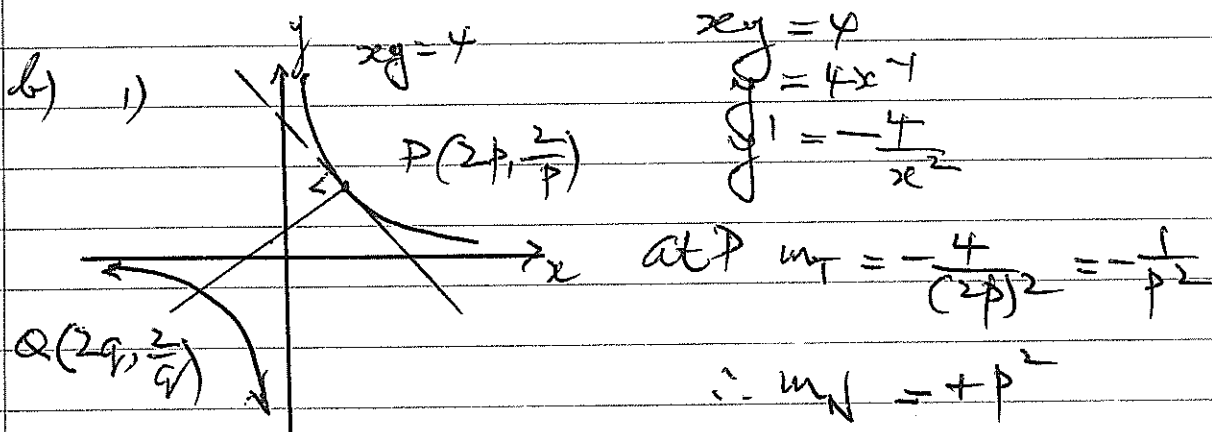 b) 1)
y
xy = 4
P(2p, 2/p)
x
Q(2q, 2/q)
xy = 4
y = 4x⁻¹
y¹ = -4/x²
at P m_T = -4/(2p)² = -1/p²
∴ m_N = +p²